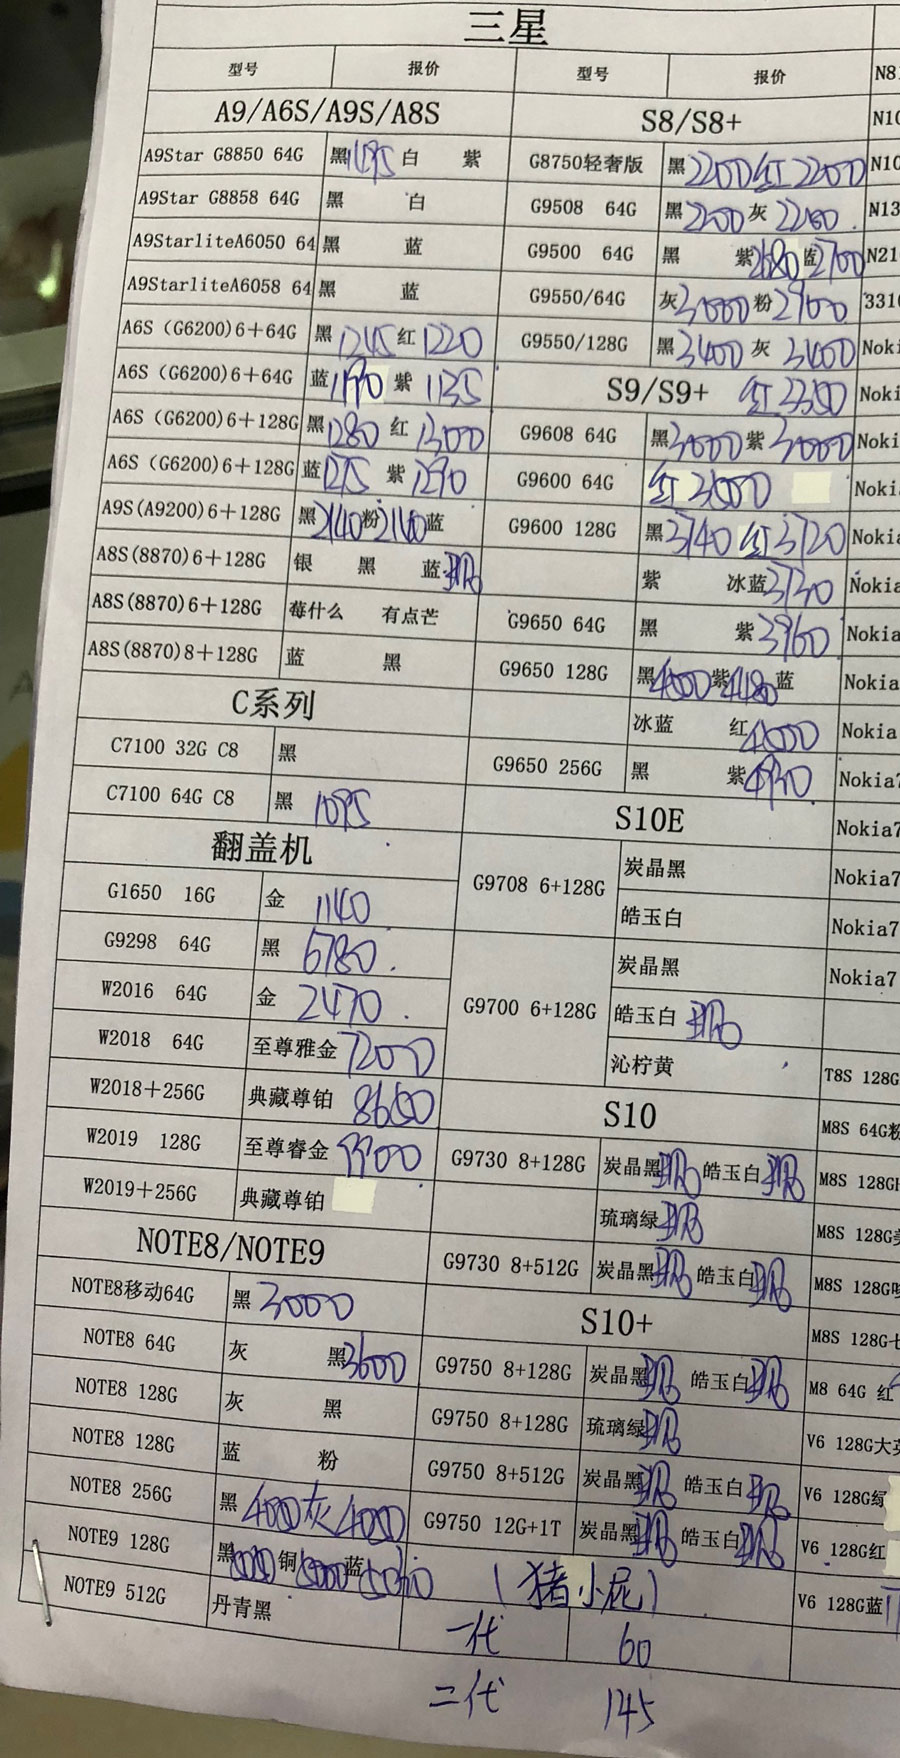 三星
型号 报价 型号 报价
A9/A6S/A9S/A8S S8/S8+
A9Star G8850 64G 黑1195 白 紫 G8750轻奢版 黑2200 红2200
A9Star G8858 64G 黑 白 G9508 64G 黑2200 灰2200
A9StarliteA6050 64 黑 蓝 G9500 64G 黑 紫2680 蓝2700
A9StarliteA6058 64 黑 蓝 G9550/64G 灰3000 粉2900
A6S (G6200)6+64G 黑1245 红1220 G9550/128G 黑3400 灰3400
A6S (G6200)6+64G 蓝1190 紫1135 S9/S9+ 红3350
A6S (G6200)6+128G 黑1280 红1300 G9608 64G 黑3000 紫3000
A6S (G6200)6+128G 蓝1275 紫1290 G9600 64G 红3000
A9S(A9200)6+128G 黑2140 粉2140 蓝 G9600 128G 黑3740 红3720
A8S(8870)6+128G 银 黑 蓝 紫 冰蓝3730
A8S(8870)6+128G 莓什么 有点芒 G9650 64G 黑 紫3960
A8S(8870)8+128G 蓝 黑 G9650 128G 黑4500 紫4480 蓝
C系列 冰蓝 红4500
C7100 32G C8 黑 G9650 256G 黑 紫4930
C7100 64G C8 黑 1095 S10E
翻盖机 G9708 6+128G 炭晶黑
G1650 16G 金 1140 皓玉白
G9298 64G 黑 6780 G9700 6+128G 炭晶黑
W2016 64G 金 2470 皓玉白
W2018 64G 至尊雅金 7200 沁柠黄
W2018+256G 典藏尊铂 8650 S10
W2019 128G 至尊睿金 9900 G9730 8+128G 炭晶黑 皓玉白
W2019+256G 典藏尊铂 琉璃绿
NOTE8/NOTE9 G9730 8+512G 炭晶黑 皓玉白
NOTE8移动64G 黑 3000 S10+
NOTE8 64G 灰 黑3600 G9750 8+128G 炭晶黑 皓玉白
NOTE8 128G 灰 黑 G9750 8+128G 琉璃绿
NOTE8 128G 蓝 粉 G9750 8+512G 炭晶黑 皓玉白
NOTE8 256G 黑 4000 灰 4000 G9750 12G+1T 炭晶黑 皓玉白
NOTE9 128G 黑 铜5000 蓝 (猪小屁)
NOTE9 512G 丹青黑 一代 60
二代 145
3310
Noki
Noki
Noki
Nokia
Nokia
Nokia
Nokia
Nokia
Nokia
Nokia7
Nokia7
Nokia7
Nokia7
Nokia7
T8S 128G
M8S 64G粉
M8S 128G
M8S 128G
M8S 128G
M8S 128G七
M8 64G 红
V6 128G大英
V6 128G绿
V6 128G红
V6 128G蓝